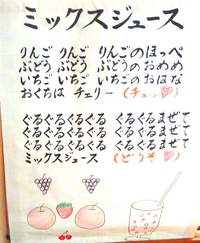 ミックスジュース
りんご りんご りんごのほっぺ
ぶどう ぶどう ぶどうのおめめ
いちご いちご いちごのおはな
おくちは チェリー (チュッ♡)
ぐるぐるぐるぐる ぐるぐるまぜて
ぐるぐるぐるぐる ぐるぐるまぜて
ぐるぐるぐるぐる ぐるぐるまぜて
ミックスジュース (どうぞ♡)